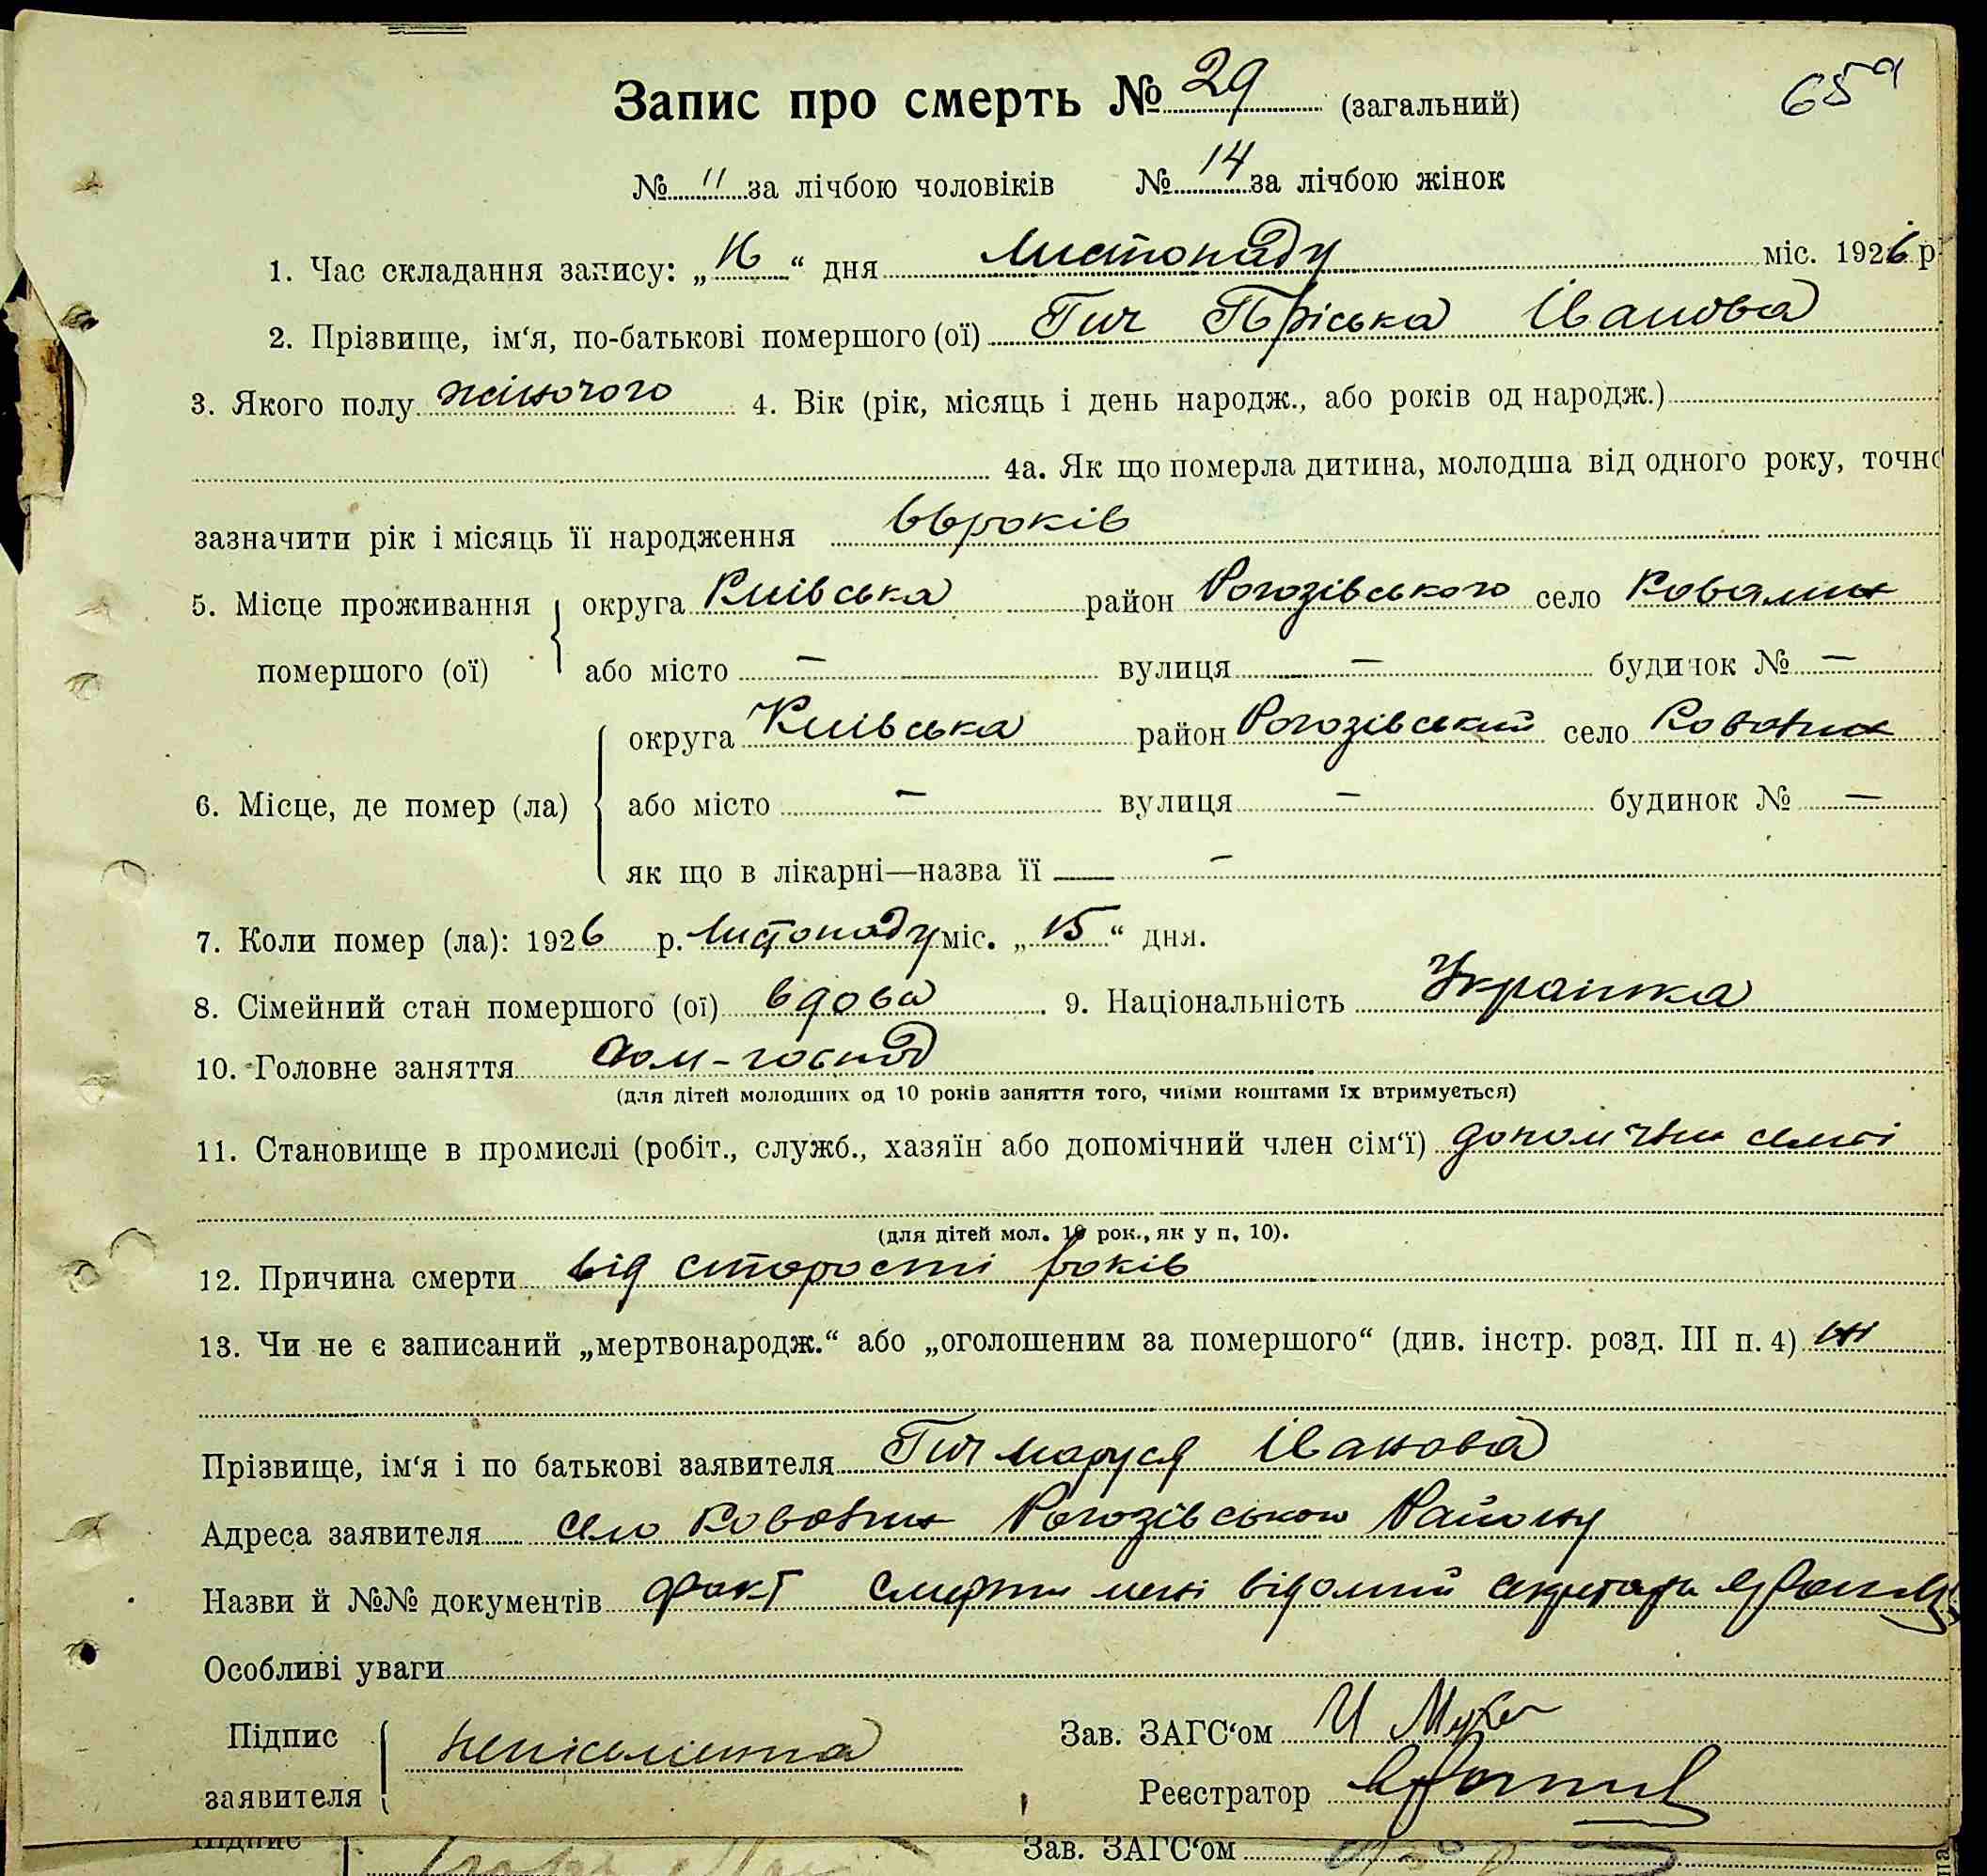 65
Запис про смерть № 29 (загальний)
№ 11 за лічбою чоловіків № 14 за лічбою жінок
1. Час складання запису: „16“ дня листопаду міс. 1926 р
2. Прізвище, ім‘я, по-батькові помершого (ої) Гич Пріська Іванова
3. Якого полу жіночого 4. Вік (рік, місяць і день народж., або років од народж.)
4а. Як що померла дитина, молодша від одного року, точно
зазначити рік і місяць її народження 66 років
5. Місце проживання округа Київська район Рогозівського село Ковалин
помершого (ої) або місто — вулиця — будинок № —
округа Київська район Рогозівський село Ковалин
6. Місце, де помер (ла) або місто — вулиця — будинок № —
як що в лікарні—назва її —
7. Коли помер (ла): 1926 р. листопаду міс. „15“ дня.
8. Сімейний стан помершого (ої) вдова 9. Національність Українка
10. Головне заняття дом-господ
(для дітей молодших од 10 років заняття того, чиїми коштами їх втримується)
11. Становище в промислі (робіт., служб., хазяїн або допомічний член сім‘ї) допом член семї
(для дітей мол. 10 рок., як у п. 10).
12. Причина смерти від старості років
13. Чи не є записаний „мертвонародж.“ або „оголошеним за помершого“ (див. інстр. розд. III п. 4) ні
Прізвище, ім‘я і по батькові заявителя Гич Маруся Іванова
Адреса заявителя село Ковалин Рогозівського Району
Назви й №№ документів факт смерти мені відомий секретарь
Особливі уваги
Підпис заявителя неписьменна Зав. ЗАГС‘ом
Реєстратор
Підпис Зав. ЗАГС‘ом